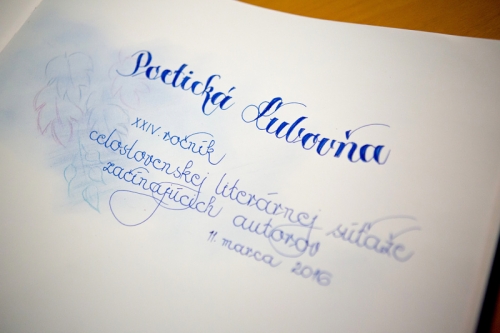 Poetická Ľubovňa
XXIV. ročník
celoslovenskej literárnej súťaže
začínajúcich autorov
11. marca 2016